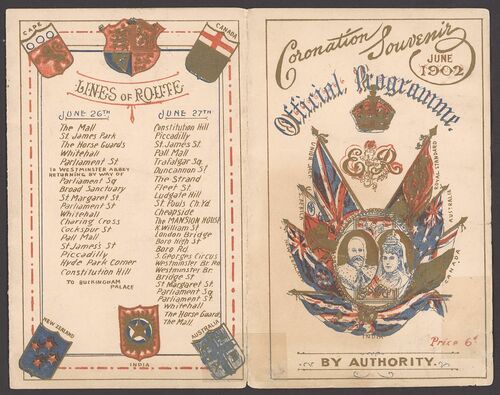 CAPE
CANADA
LINES OF ROUTE
JUNE 26TH
The Mall
St. James Park
The Horse Guards
Whitehall
Parliament St.
TO WESTMINSTER ABBEY
RETURNING BY WAY OF
Parliament Sq
Broad Sanctuary
St. Margaret St.
Parliament St.
Whitehall
Charing Cross
Cockspur St
Pall Mall
St. James's St
Piccadilly
Hyde Park Corner
Constitution Hill
TO BUCKINGHAM
PALACE
JUNE 27TH
Constitution Hill
Piccadilly
St. James St.
Pall Mall
Trafalgar Sq.
Duncannon St
The Strand
Fleet St.
Ludgate Hill
St. Pauls Ch. Yd
Cheapside
The MANSION HOUSE
K. William St
London Bridge
Boro High St
Boro Rd.
S. Georges Circus
Westminster Br. Rd
Westminster Br.
Bridge St
St Margaret St.
Parliament Sq
Parliament St.
Whitehall
The Horse Guards
The Mall
NEW ZEALAND
INDIA
AUSTRALIA
Coronation Souvenir
JUNE
1902
Official Programme.
ROYAL STANDARD
AUSTRALIA
CANADA
INDIA
Price 6d
BY AUTHORITY.